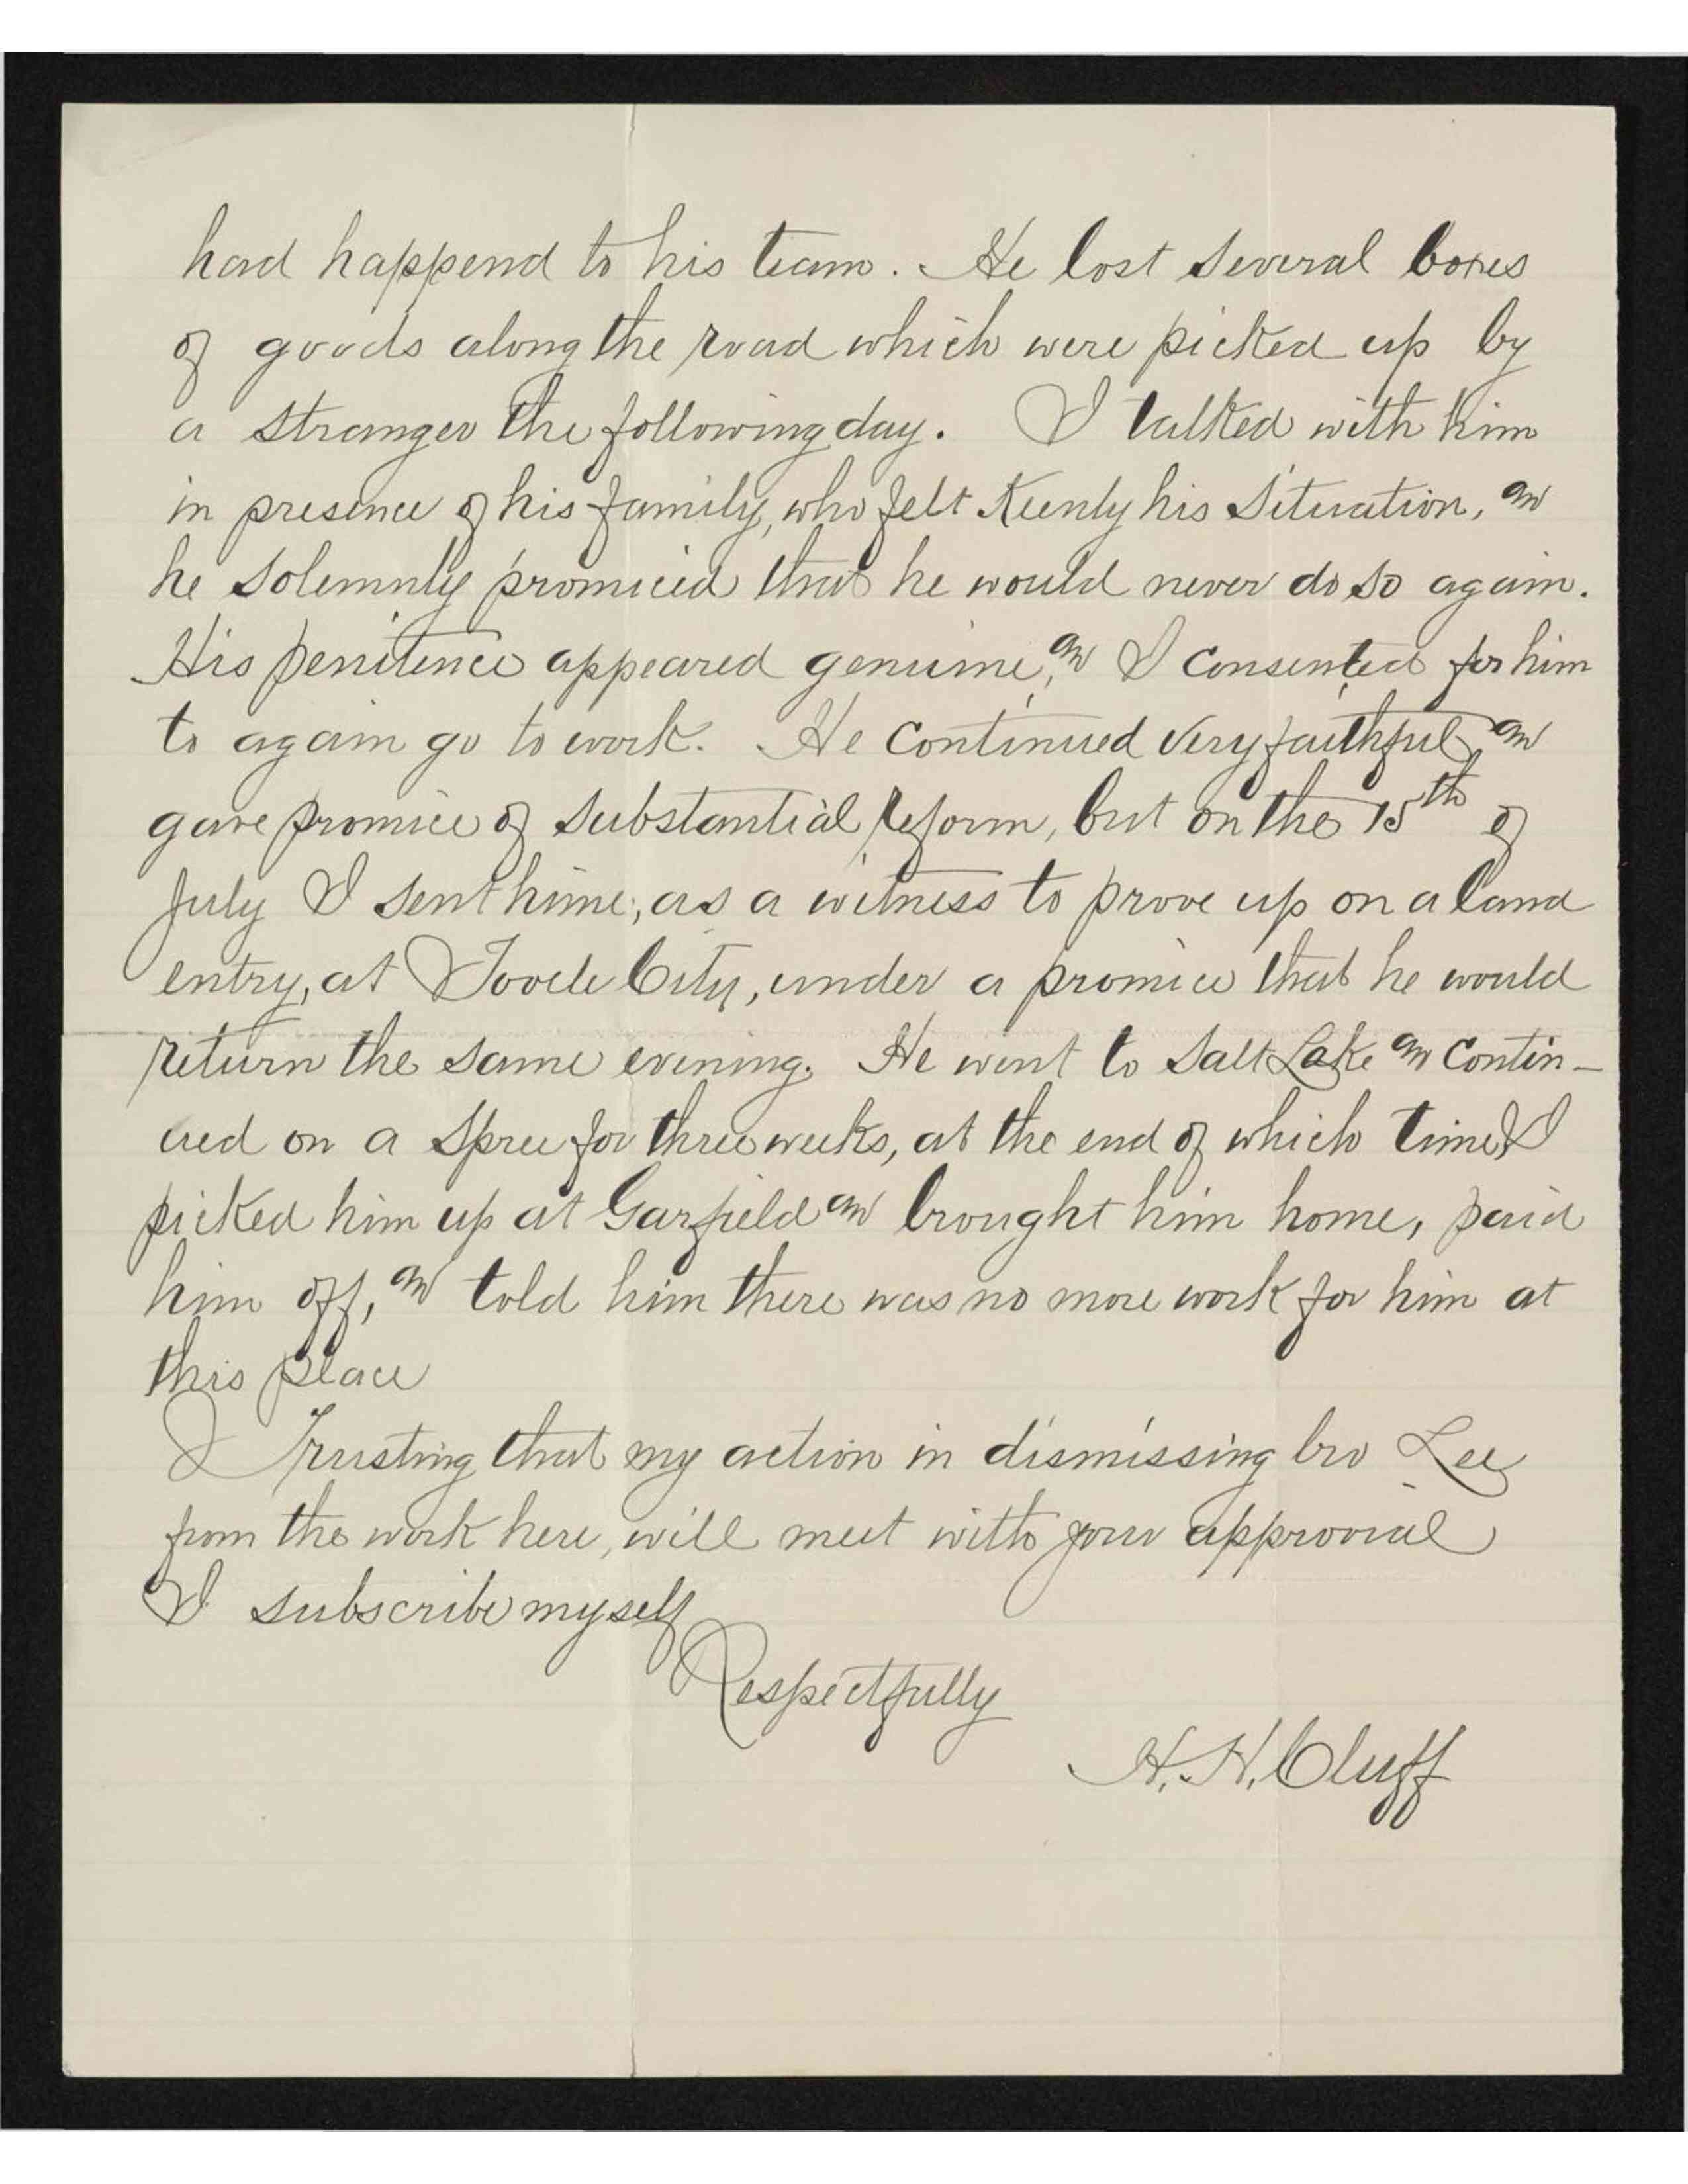 had happend to his team. He lost several boxes
of goods along the road which were picked up by
a stranger the following day. I talked with him
in presence of his family, who felt Keenly his situation, an
he solemnly promiced that he would never do so again.
His penitence appeared genuine, an I consented for him
to again go to work. He continued very faithful, an
gave promice of substantial reform, but on the 15th of
July I sent hime, as a witness to prove up on a land
entry, at Tooele City, under a promice that he would
return the same evening. He went to Salt Lake an contin-
ued on a spree for three weeks, at the end of which time I
picked him up at Garfield an brought him home, paid
him off, an told him there was no more work for him at
this place
Trusting that my action in dismissing bro Lee
from the work here, will meet with your approvial
I subscribe myself
Respectfully
H. H. Cluff